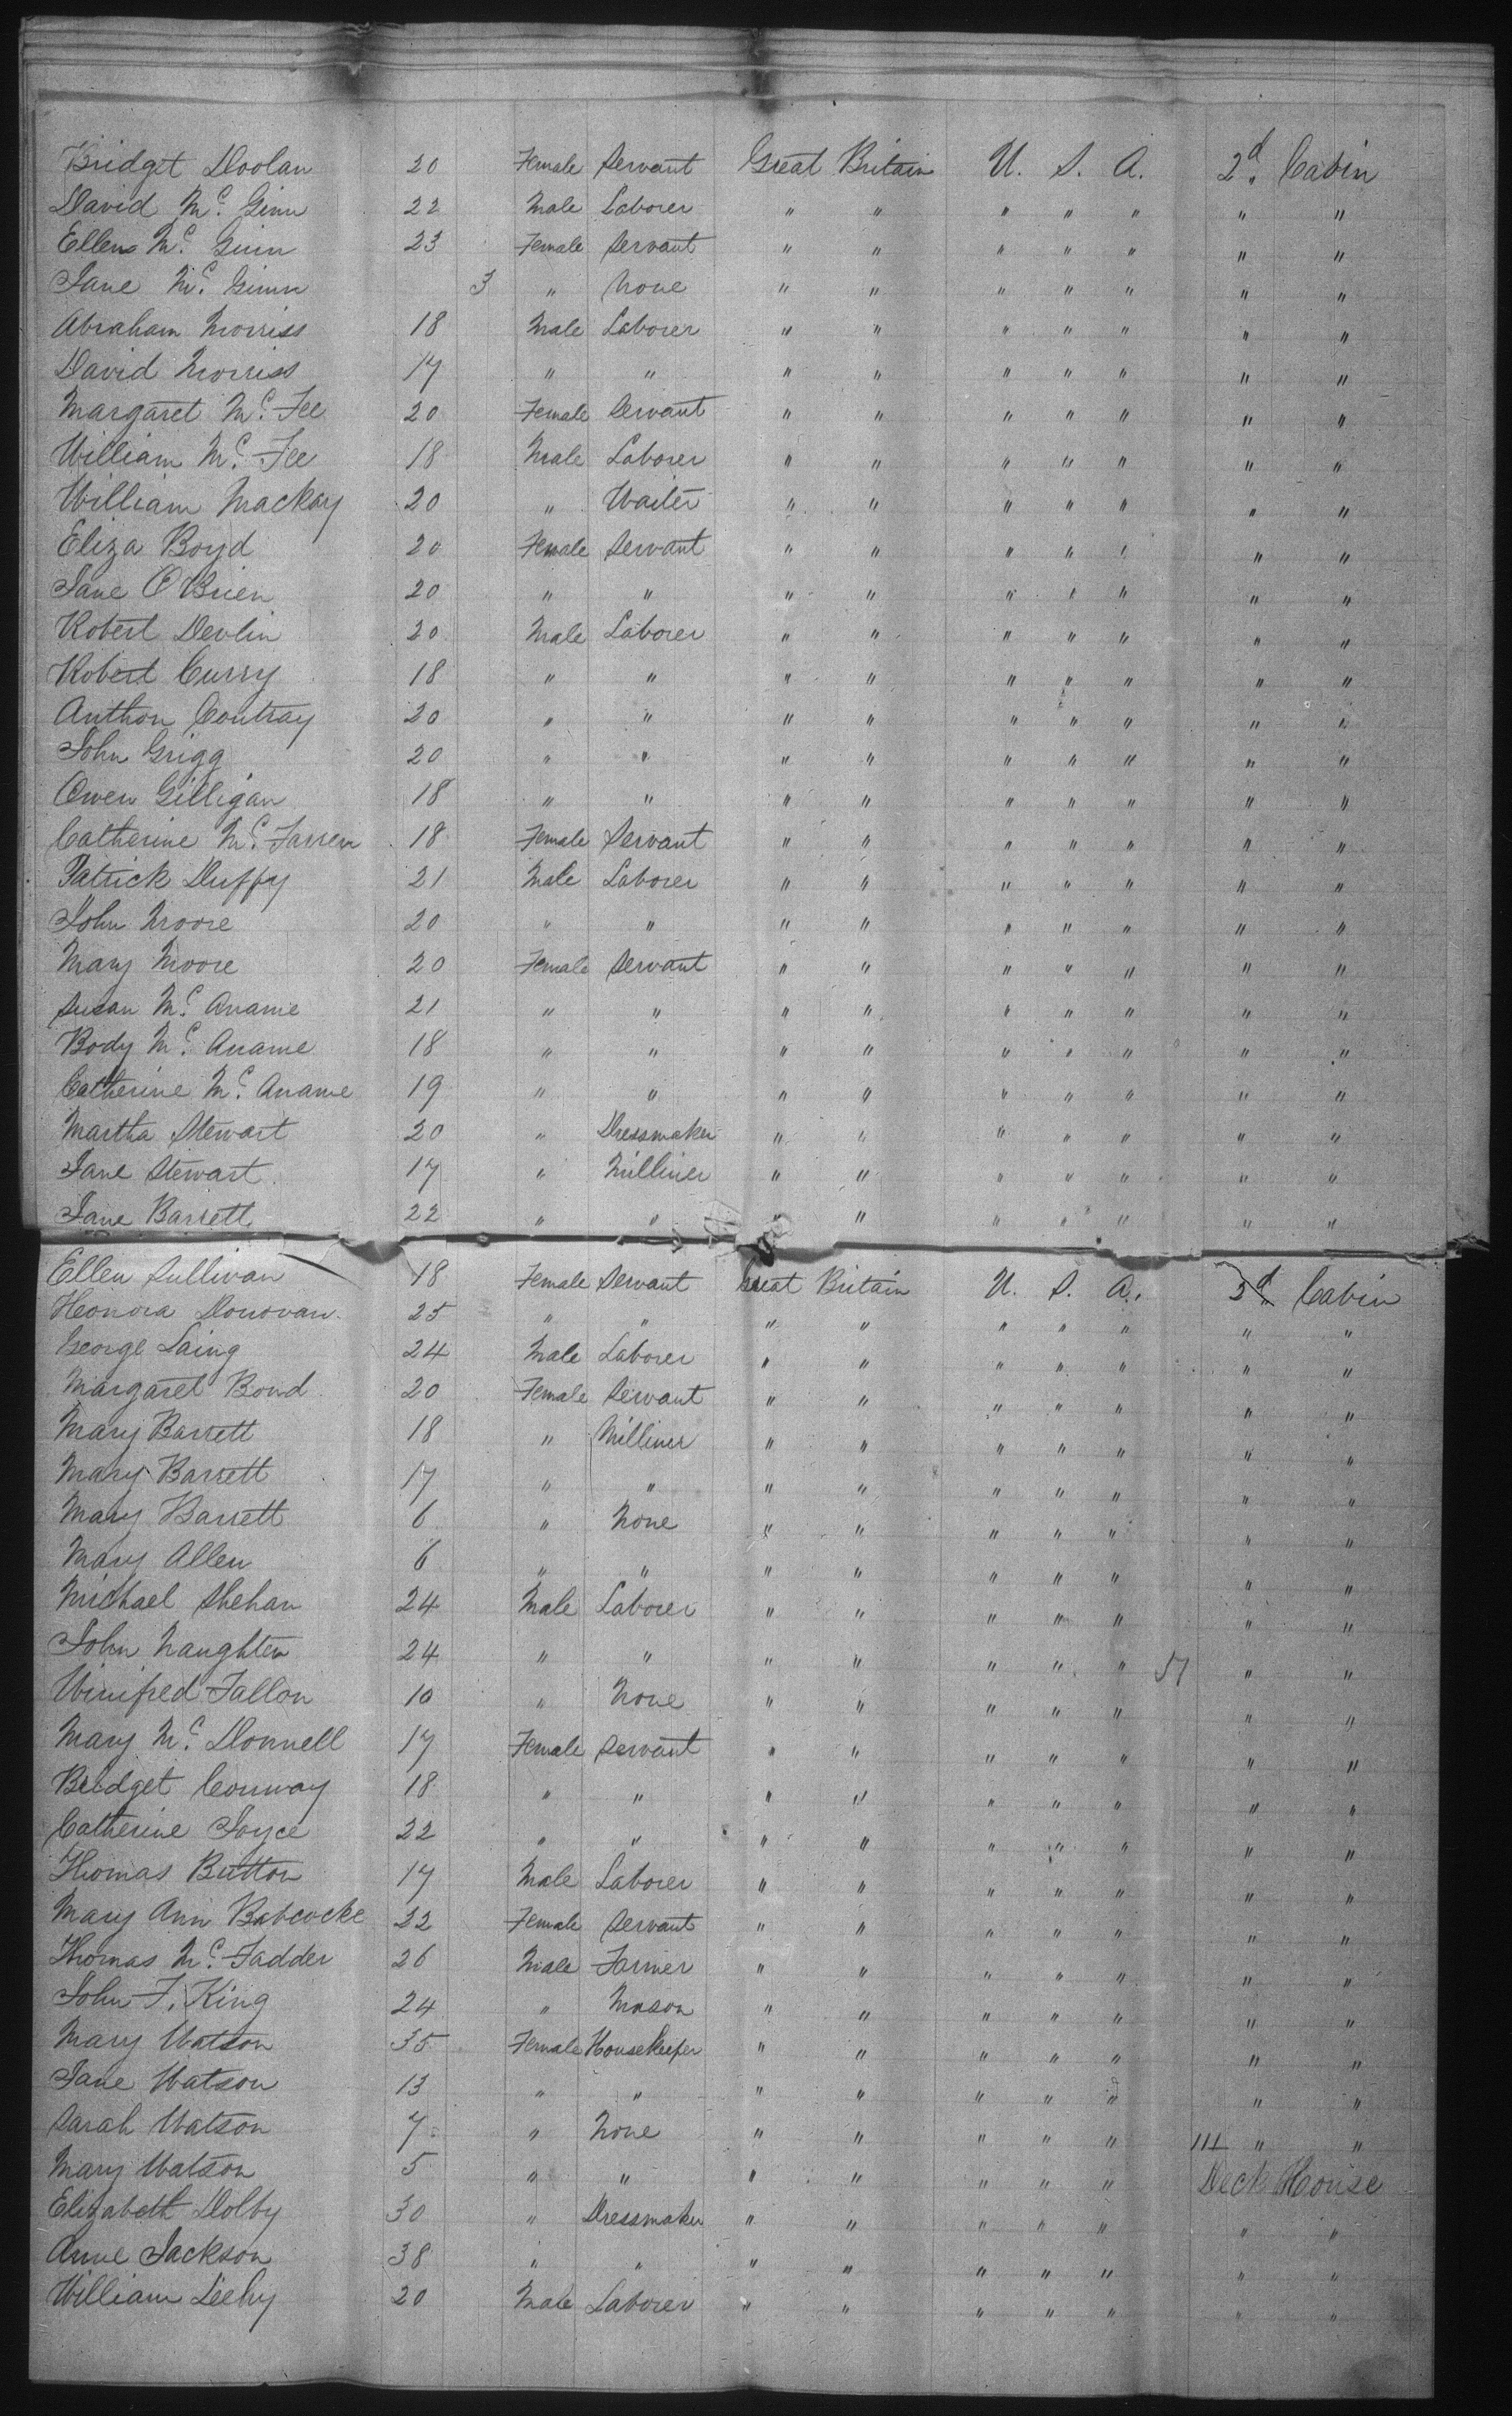 Bridget Doolan 20 Female Servant Great Britain U. S. A. 2d. Cabin
David Mc. Ginn 22 Male Laborer " " " " " " "
Ellen Mc. Ginn 23 Female Servant " " " " " " "
Jane Mc. Ginn 3 " None " " " " " " "
Abraham Morriss 18 Male Laborer " " " " " " "
David Morriss 17 " " " " " " " " "
Margaret Mc. Fee 20 Female Servant " " " " " " "
William Mc. Fee 18 Male Laborer " " " " " " "
William Mackay 20 " Waiter " " " " " " "
Eliza Boyd 20 Female Servant " " " " " " "
Jane O'Brien 20 " " " " " " " " "
Robert Devlin 20 Male Laborer " " " " " " "
Robert Curry 18 " " " " " " " " "
Anthon Contray 20 " " " " " " " " "
John Grigg 20 " " " " " " " " "
Owen Gilligan 18 " " " " " " " " "
Catherine Mc. Farren 18 Female Servant " " " " " " "
Patrick Duffy 21 Male Laborer " " " " " " "
John Moore 20 " " " " " " " " "
Mary Moore 20 Female Servant " " " " " " "
Susan Mc. Aname 21 " " " " " " " " "
Body Mc. Aname 18 " " " " " " " " "
Catherine Mc. Aname 19 " " " " " " " " "
Martha Stewart 20 " Dressmaker " " " " " " "
Jane Stewart 17 " Milliner " " " " " " "
Jane Barrett 22 " " " " " " " " "
Ellen Sullivan 18 Female Servant Great Britain U. S. A. 2d Cabin
Honora Donovan 25 " " " " " " " " "
George Laing 24 Male Laborer " " " " " " "
Margaret Bond 20 Female Servant " " " " " " "
Mary Barrett 18 " Milliner " " " " " " "
Mary Barrett 17 " " " " " " " " "
Mary Barrett 6 " None " " " " " " "
Mary Allen 6 " " " " " " " " "
Michael Shehan 24 Male Laborer " " " " " " "
John Naughten 24 " " " " " " " 57 " "
Winifred Fallon 10 " None " " " " " " "
Mary Mc. Donnell 17 Female Servant " " " " " " "
Bridget Conway 18 " " " " " " " " "
Catherine Joyce 22 " " " " " " " " "
Thomas Button 17 Male Laborer " " " " " " "
Mary Ann Babcocke 22 Female Servant " " " " " " "
Thomas Mc. Fadder 26 Male Farmer " " " " " " "
John F. King 24 " Mason " " " " " " "
Mary Watson 35 Female Housekeeper " " " " " " "
Jane Watson 13 " " " " " " " " "
Sarah Watson 7 " None " " " " " 111 " "
Mary Watson 5 " " " " " " " Deck House
Elizabeth Dolby 30 " Dressmaker " " " " " " "
Anne Jackson 38 " " " " " " " " "
William Leehy 20 Male Laborer " " " " " " "